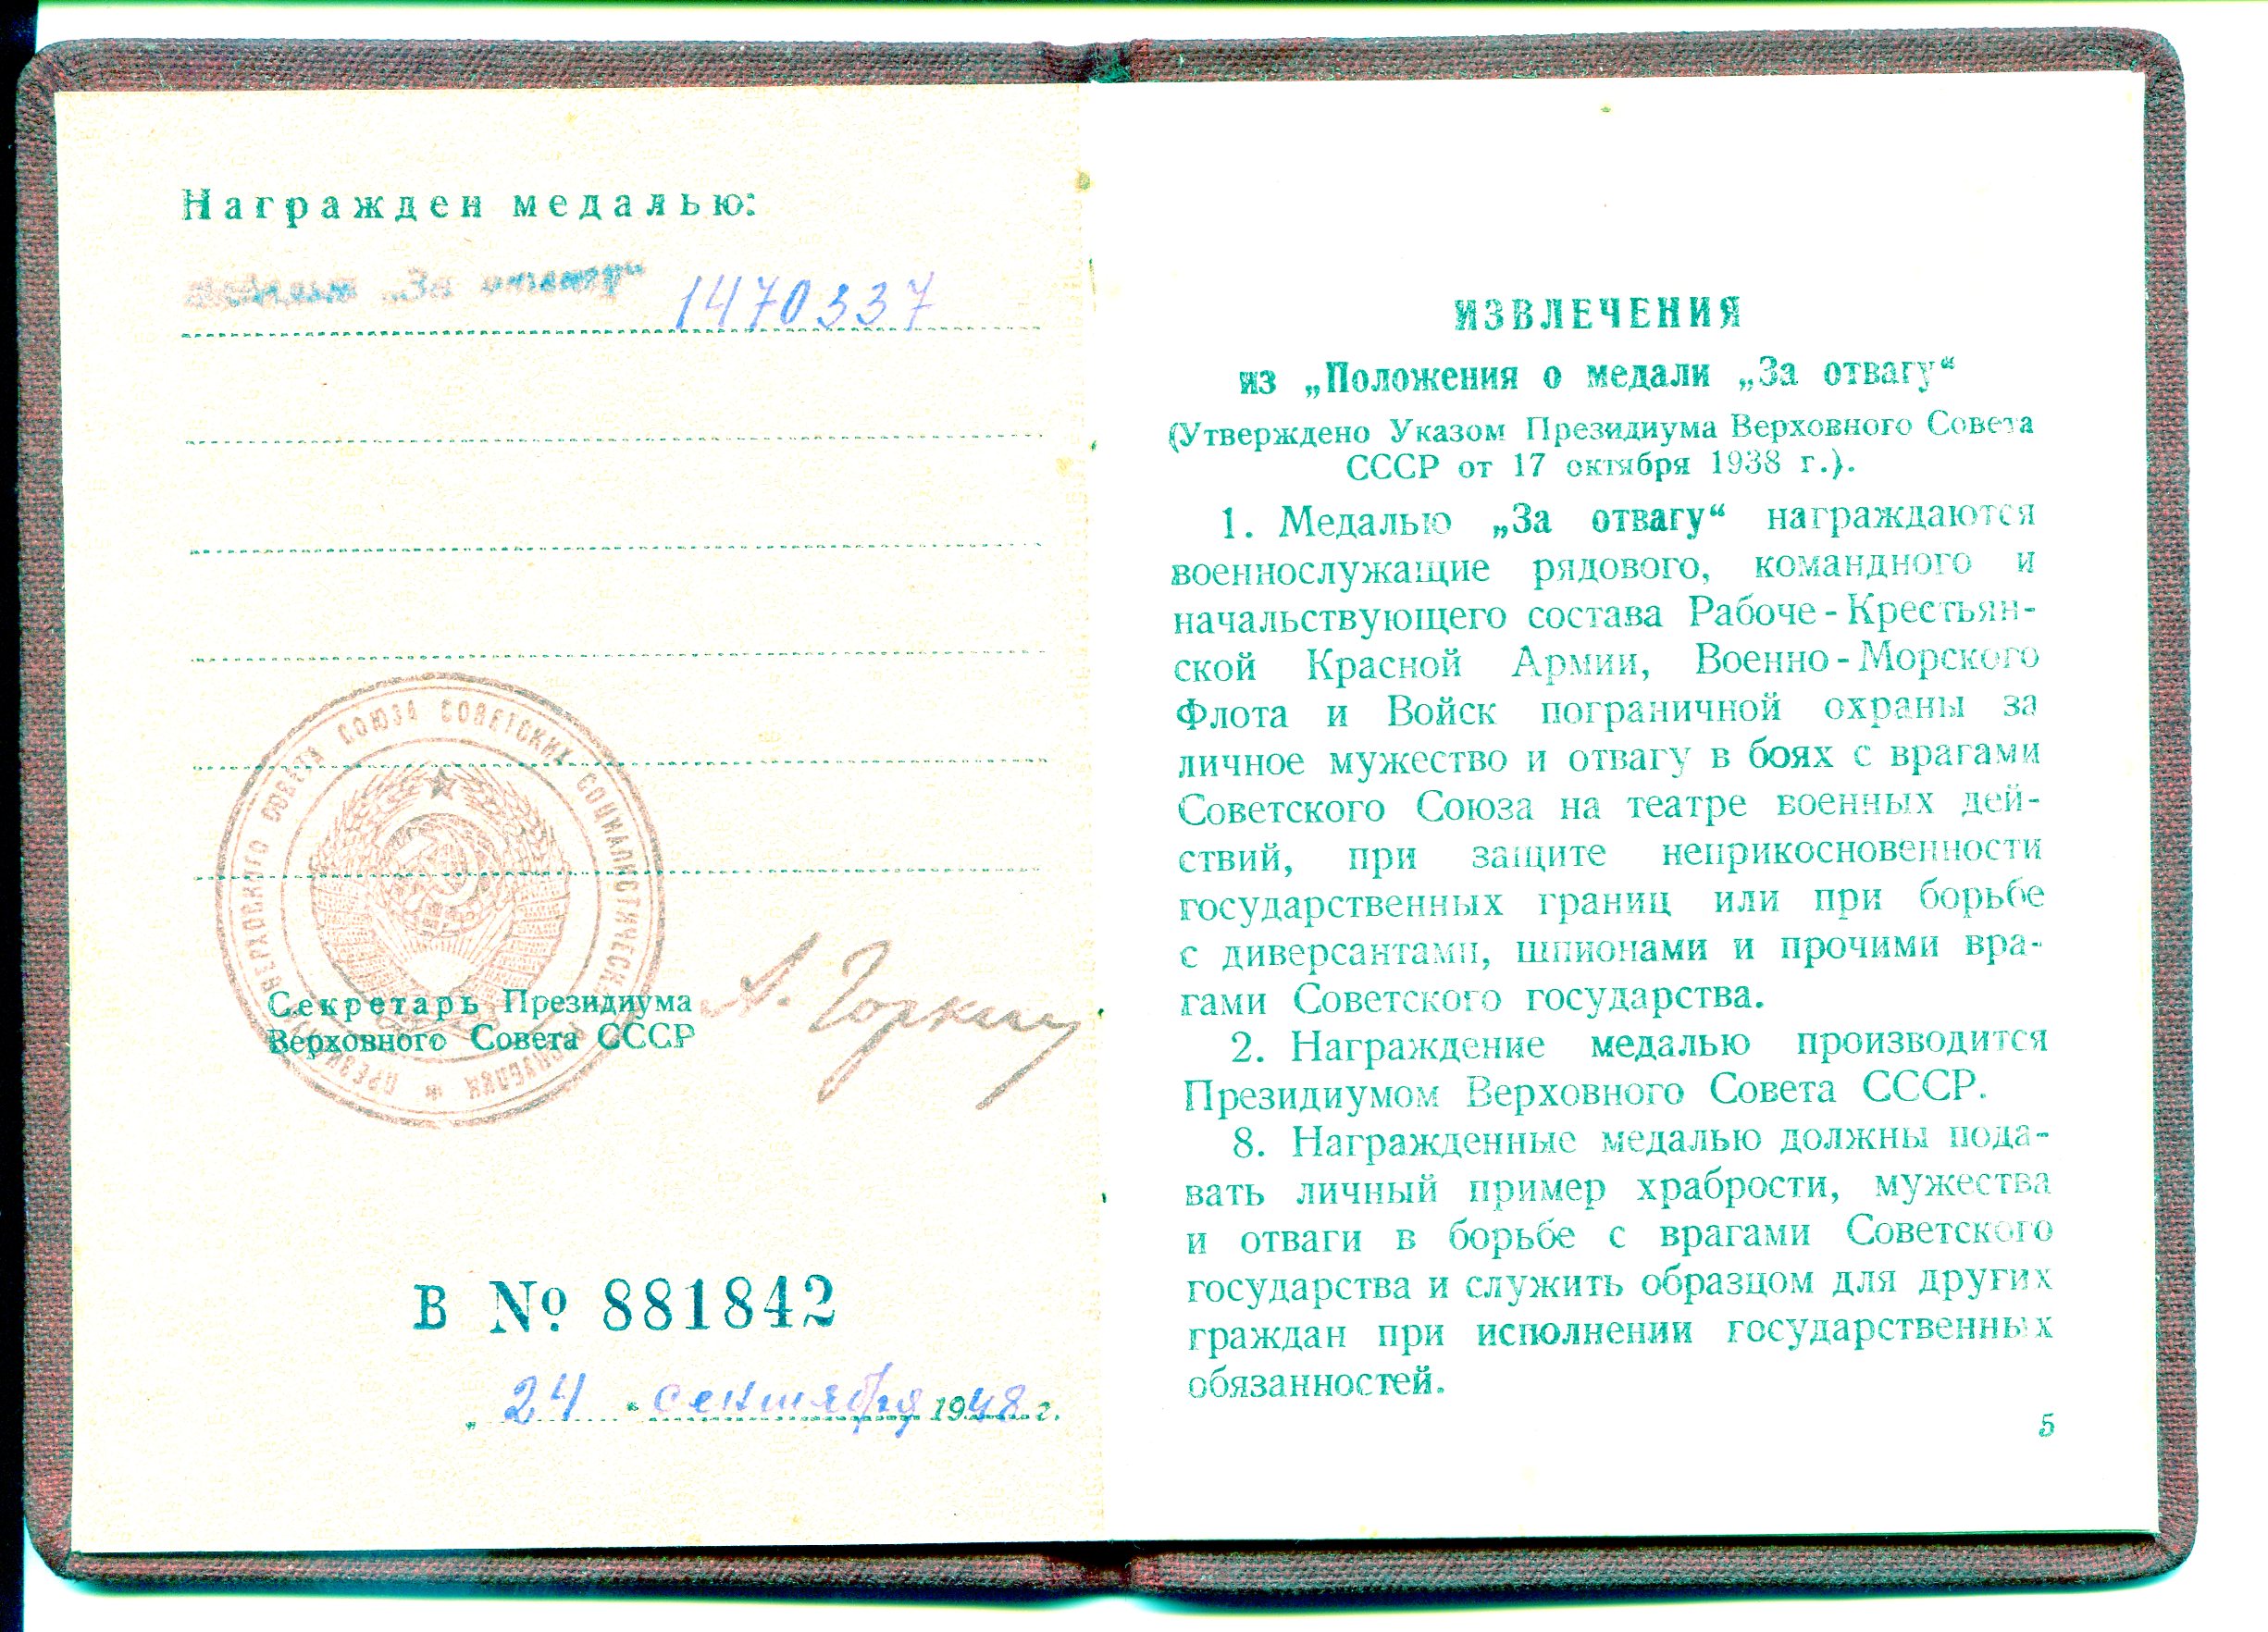 Награжден медалью:
Медалью „За отвагу“ 1470337
ПРЕЗИДИУМ ВЕРХОВНОГО СОВЕТА СОЮЗА СОВЕТСКИХ СОЦИАЛИСТИЧЕСКИХ РЕСПУБЛИК *
Секретарь Президиума
Верховного Совета СССР
А. Горкин
В № 881842
„24“ сентября 1948 г.
ИЗВЛЕЧЕНИЯ
из „Положения о медали „За отвагу“
(Утверждено Указом Президиума Верховного Совета
СССР от 17 октября 1938 г.).
1. Медалью „За отвагу“ награждаются
военнослужащие рядового, командного и
начальствующего состава Рабоче-Крестьян-
ской Красной Армии, Военно-Морского
Флота и Войск пограничной охраны за
личное мужество и отвагу в боях с врагами
Советского Союза на театре военных дей-
ствий, при защите неприкосновенности
государственных границ или при борьбе
с диверсантами, шпионами и прочими вра-
гами Советского государства.
2. Награждение медалью производится
Президиумом Верховного Совета СССР.
8. Награжденные медалью должны пода-
вать личный пример храбрости, мужества
и отваги в борьбе с врагами Советского
государства и служить образцом для других
граждан при исполнении государственных
обязанностей.
5